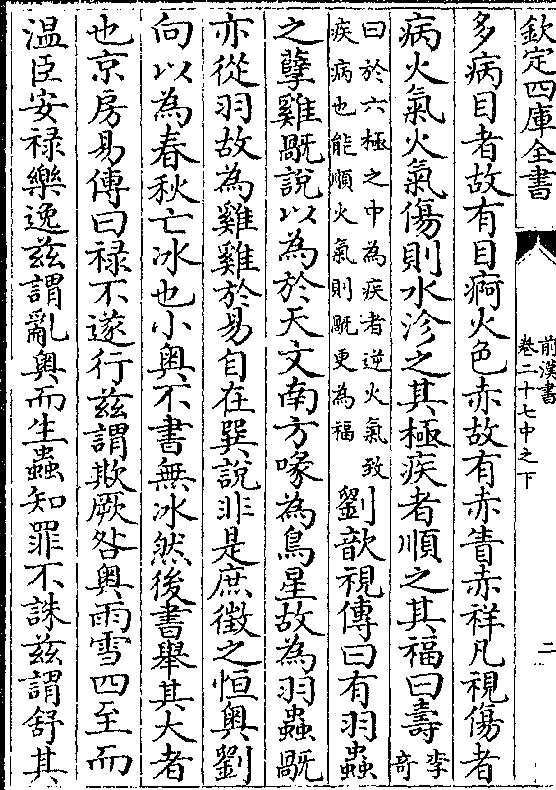 欽定四庫全書
前漢書
卷二十七中之下
二
多病目者故有目痾火色赤故有赤眚赤祥凡視傷者
病火氣火氣傷則水沴之其極疾者順之其福曰壽李奇
曰於六極之中為疾者逆火氣致
疾病也能順火氣則旤更為福
劉歆視傳曰有羽蟲
之孽雞旤說以為於天文南方喙為鳥星故為羽蟲旤
亦從羽故為雞雞於易自在巽說非是庶徵之恒奧劉
向以為春秋亡冰也小奧不書無冰然後書舉其大者
也京房易傳曰祿不遂行茲謂欺厥咎奧雨雪四至而
温臣安祿樂逸茲謂亂奧而生蟲知罪不誅茲謂舒其